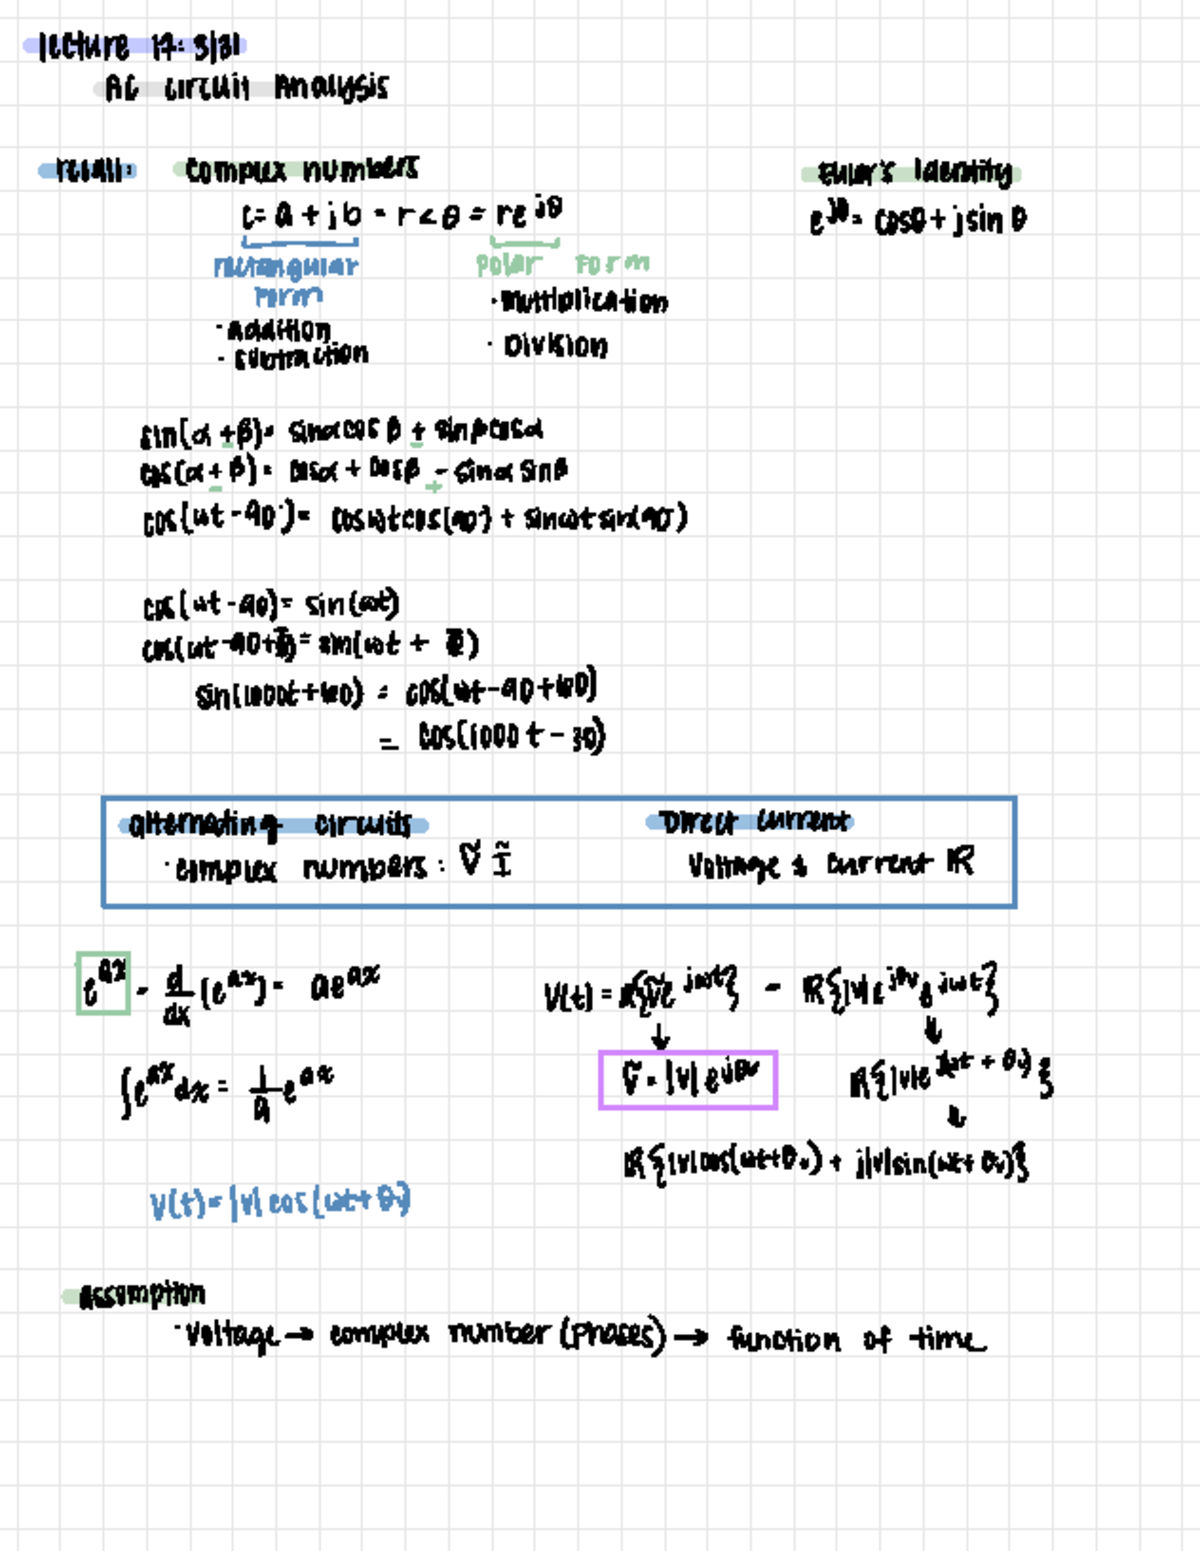 lecture 17: 3/31
AC circuit Analysis
recall: complex numbers
c = a + jb = r < θ = re^jθ
rectangular form
· addition
· subtraction
polar form
· Multiplication
· Division
Euler's Identity
e^jθ = cosθ + jsin θ
sin(α + β) = sinαcos β + sinβcosα
cos(α + β) = cosα + cosβ - sinα sinβ
cos(ωt - 90°) = cosωtcos(90°) + sinωtsin(90°)
cos(ωt - 90) = sin(ωt)
cos(ωt - 90 + Φ) = sin(ωt + Φ)
sin(1000t + 60) = cos(ωt - 90 + 60)
= cos(1000t - 30)
alternating circuits
· complex numbers: Ṽ Ĩ
Direct current
Voltage & current ℝ
e^ax - d/dx (e^ax) = ae^ax
∫e^ax dx = 1/a e^ax
V(t) = ℝ{Ṽe^jωt} = ℝ{|V|e^jθv e^jωt}
↓ ↓
Ṽ = |V| e^jθv
ℝ{|V|e^j(ωt + θv)}
↓
ℝ{|V|cos(ωt + θv) + j|V|sin(ωt + θv)}
V(t) = |V| cos(ωt + θv)
assumption
· Voltage → complex number (phases) → function of time